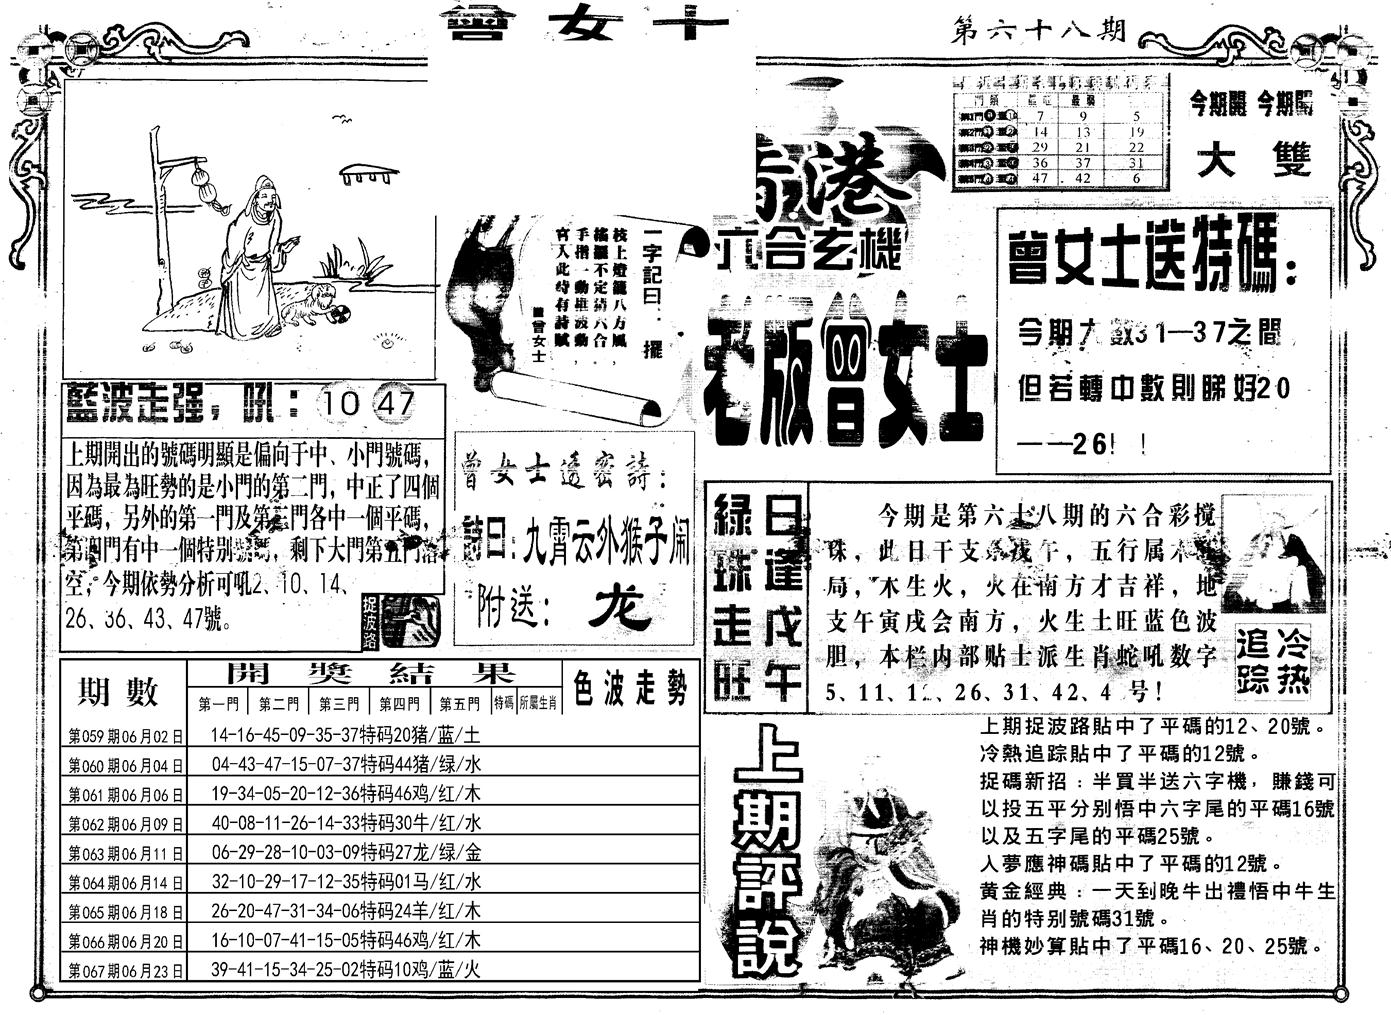 曾女士
第六十八期
7 9 5
14 13 19
29 21 22
36 37 31
47 42 6
今期開 今期開
大 雙
香港
六合玄機
老版曾女士
一字記曰：擺
枝上燈籠八方風，
搖擺不定猜六合．
手指一動推波動，
官人此時有詩賦
曾女士
曾女士送特碼：
今期大數31—37之間
但若轉中數則睇好20
——26！！
藍波走强，吼：10 47
上期開出的號碼明顯是偏向于中、小門號碼，
因為最為旺勢的是小門的第二門，中正了四個
平碼，另外的第一門及第三門各中一個平碼，
第四門有中一個特别號碼，剩下大門第五門落
空，今期依勢分析可吼2、10、14、
26、36、43、47號。
捉波路
曾女士透密詩：
詩曰：九霄云外猴子闹
附送：龙
綠珠走旺
日逢戊午
今期是第六十八期的六合彩搅
珠，此日干支系戊午，五行属木
局，木生火，火在南方才吉祥，地
支午寅戌会南方，火生土旺蓝色波
胆，本栏内部贴士派生肖蛇吼数字
5、11、12、26、31、42、4 号！
冷热追踪
期數 開獎結果 色波走勢
第一門 第二門 第三門 第四門 第五門 特碼 所屬生肖
第059期06月02日 14-16-45-09-35-37特码20猪/蓝/土
第060期06月04日 04-43-47-15-07-37特码44猪/绿/水
第061期06月06日 19-34-05-20-12-36特码46鸡/红/木
第062期06月09日 40-08-11-26-14-33特码30牛/红/水
第063期06月11日 06-29-28-10-03-09特码27龙/绿/金
第064期06月14日 32-10-29-17-12-35特码01马/红/水
第065期06月18日 26-20-47-31-34-06特码24羊/红/木
第066期06月20日 16-10-07-41-15-05特码46鸡/红/木
第067期06月23日 39-41-15-34-25-02特码10鸡/蓝/火
上期評說
上期捉波路貼中了平碼的12、20號。
冷熱追踪貼中了平碼的12號。
捉碼新招：半買半送六字機，賺錢可
以投五平分别悟中六字尾的平碼16號
以及五字尾的平碼25號。
人夢應神碼貼中了平碼的12號。
黄金經典：一天到晚牛出禮悟中牛生
肖的特别號碼31號。
神機妙算貼中了平碼16、20、25號。